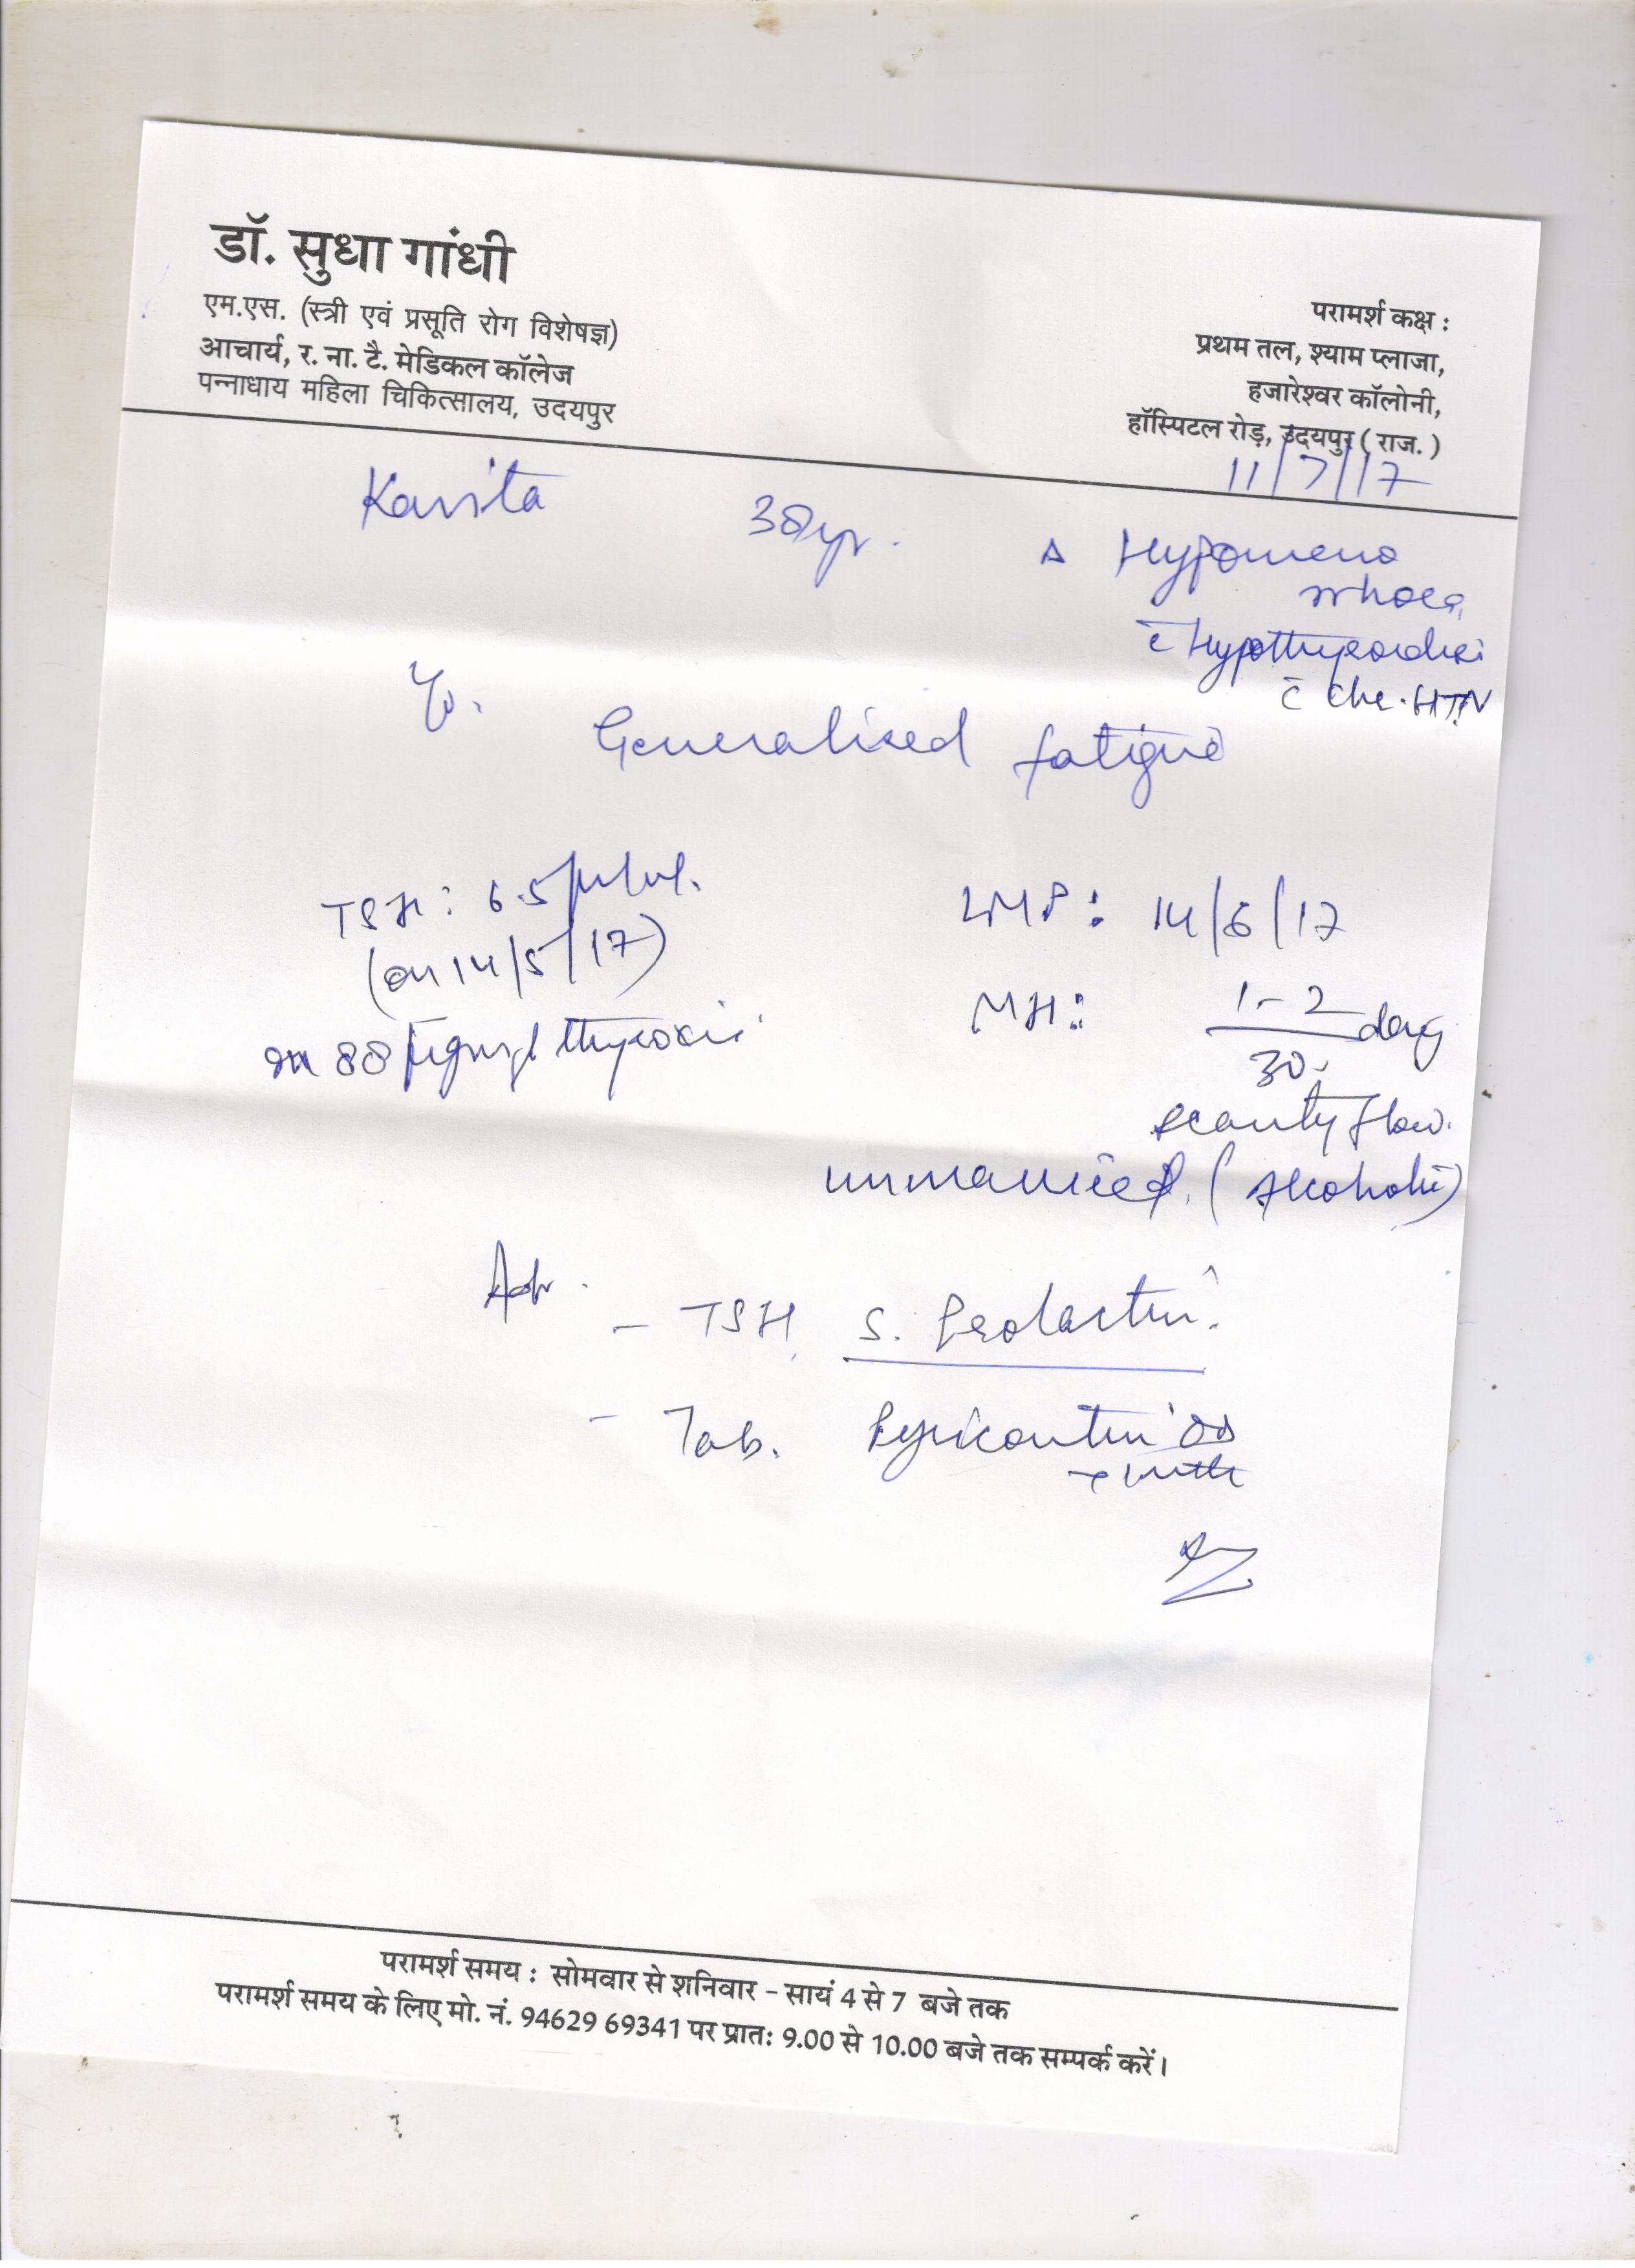 डॉ. सुधा गांधी
एम.एस. (स्त्री एवं प्रसूति रोग विशेषज्ञ)
आचार्य, र. ना. टै. मेडिकल कॉलेज
पन्नाधाय महिला चिकित्सालय, उदयपुर
परामर्श कक्ष :
प्रथम तल, श्याम प्लाजा,
हजारेश्वर कॉलोनी,
हॉस्पिटल रोड़, उदयपुर ( राज. )
11/7/17
Kavita 38yr.
Δ Hypomeno
rrhoea,
c̄ Hypothyroidi
c̄ Chr. HTN
Generalised fatigue
TSH : 6.5
(on 14/5/17)
on 88 thyroxin
LMP : 14/6/17
MH : 1-2
30 days
scanty flow.
unmarried. (Alcoholic)
Adv.
- TSH, S. Prolactin.
- Tab. Pyricontin OD
परामर्श समय : सोमवार से शनिवार - सायं 4 से 7 बजे तक
परामर्श समय के लिए मो. नं. 94629 69341 पर प्रातः 9.00 से 10.00 बजे तक सम्पर्क करें।